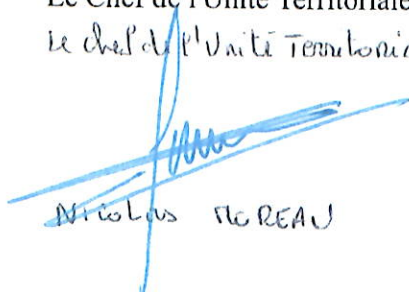 Le Chef de l'Unité Territoriale
Le chef de l'Unité Territoria
Nicolas MOREAU